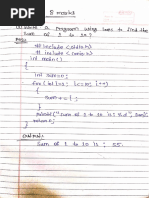 8 marks
write a program using loop to find the
sum of 1 to 10?
#include <stdio.h>
#include <conio.h>
int main()
{
int sum=0;
for(int i=1; i<=10; i++)
{
sum += i;
}
printf("sum of 1 to 10 is: %d", sum);
return 0;
}
Sum of 1 to 10 is : 55.